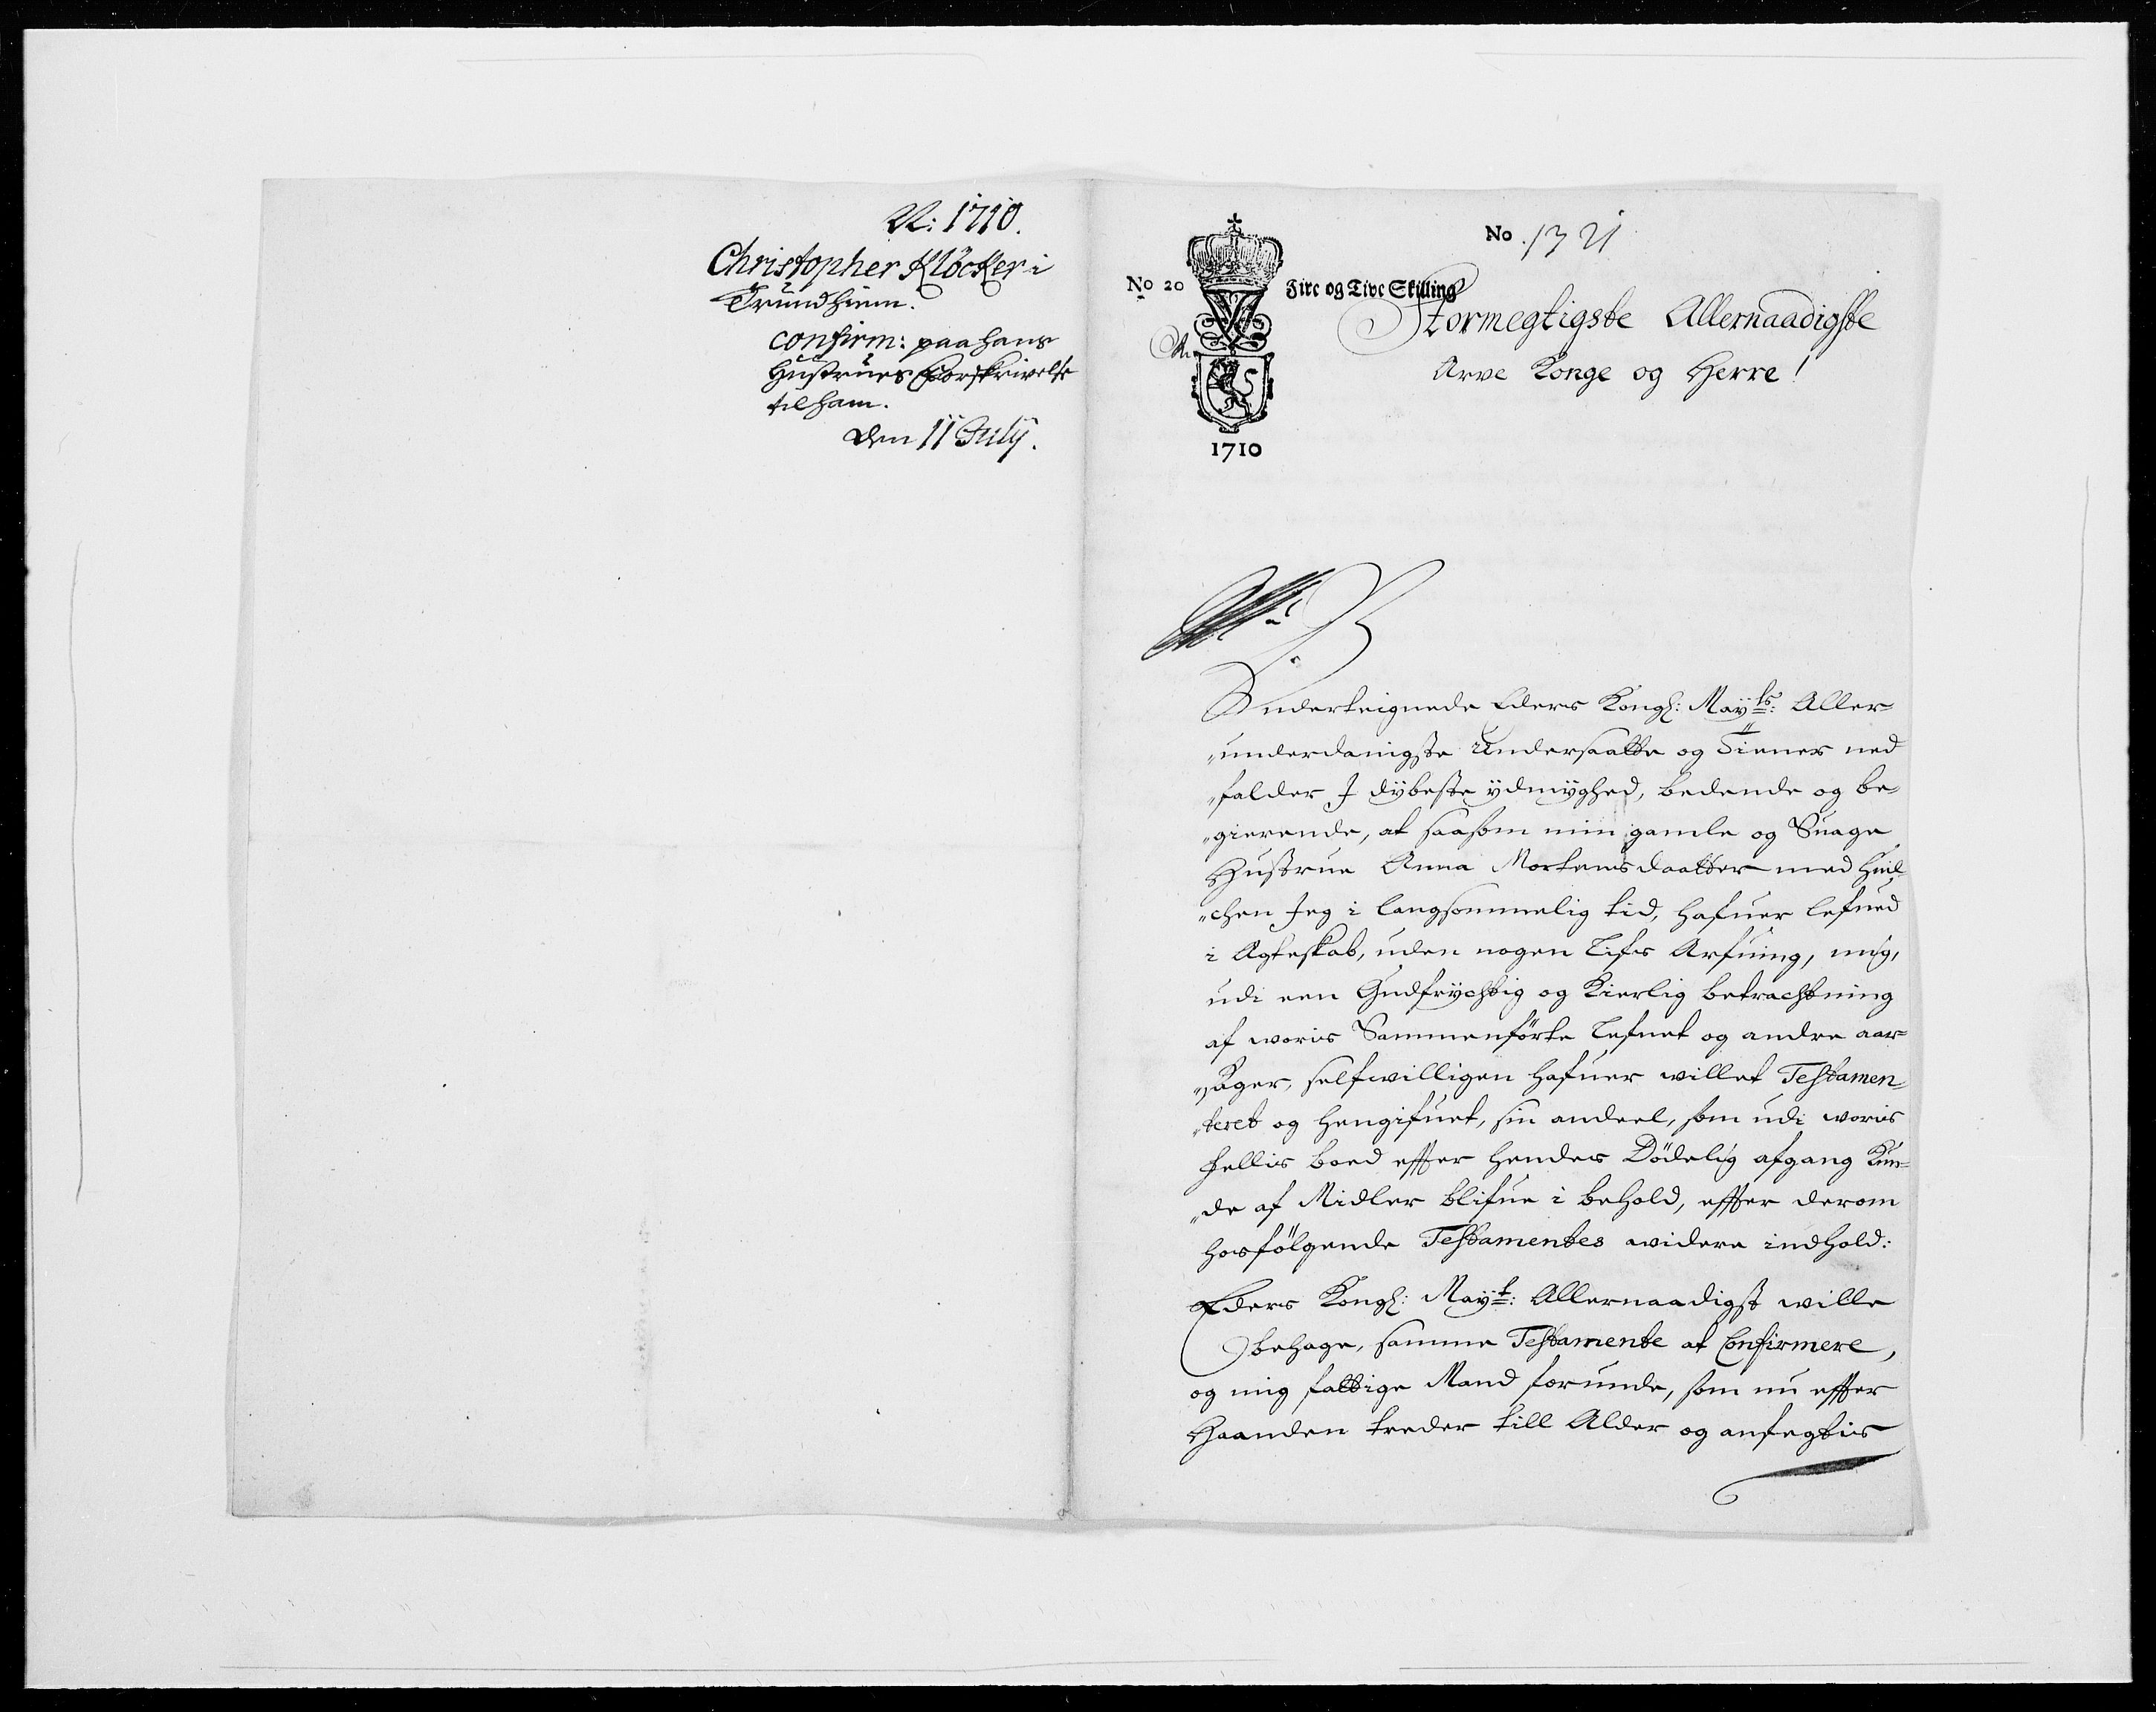 N: 1710.
Christopher Klöcker i
Trundhiem.
confirm: paa hans
Hustrues Forskrivelse
til ham.
den 11 July.
No. 1321
No 20
Fire og Tive Skilling
1710
Stormegtigste Allernaadigste
Arve Konge og Herre!
Underteignede Eders Kongl: Mayts: Aller-
underdanigste Undersaatte og Tiener ned
falder I dybeste ydmyghed, bedende og be-
gierende, at saasom min gamle og Suage
Hustrue Anna Mortensdaatter med huil-
chen Jeg i langsommelig tid, hafuer lefued
i Ægteskab, uden nogen Lifs Arfuing, mig,
udi een Gudfrychtig og Kierlig betrachtning
af woris Sammenförte Lefnet og andre aar-
sager, selfwilligen hafuer willet Testamen-
teret og hengifuet, sin andeel, som udi woris
fellis boed effter hendes Dödelig afgang Kun-
de af Midler blifue i behold, effter derom
hosfölgende Testamentes widere indhold:
Eders Kongl: Mayt: Allernaadigst wille
behage, samme Testamente at Confirmere,
og mig fattige Mand forunde, som nu effter
Haanden treder till Alder og anfegtis